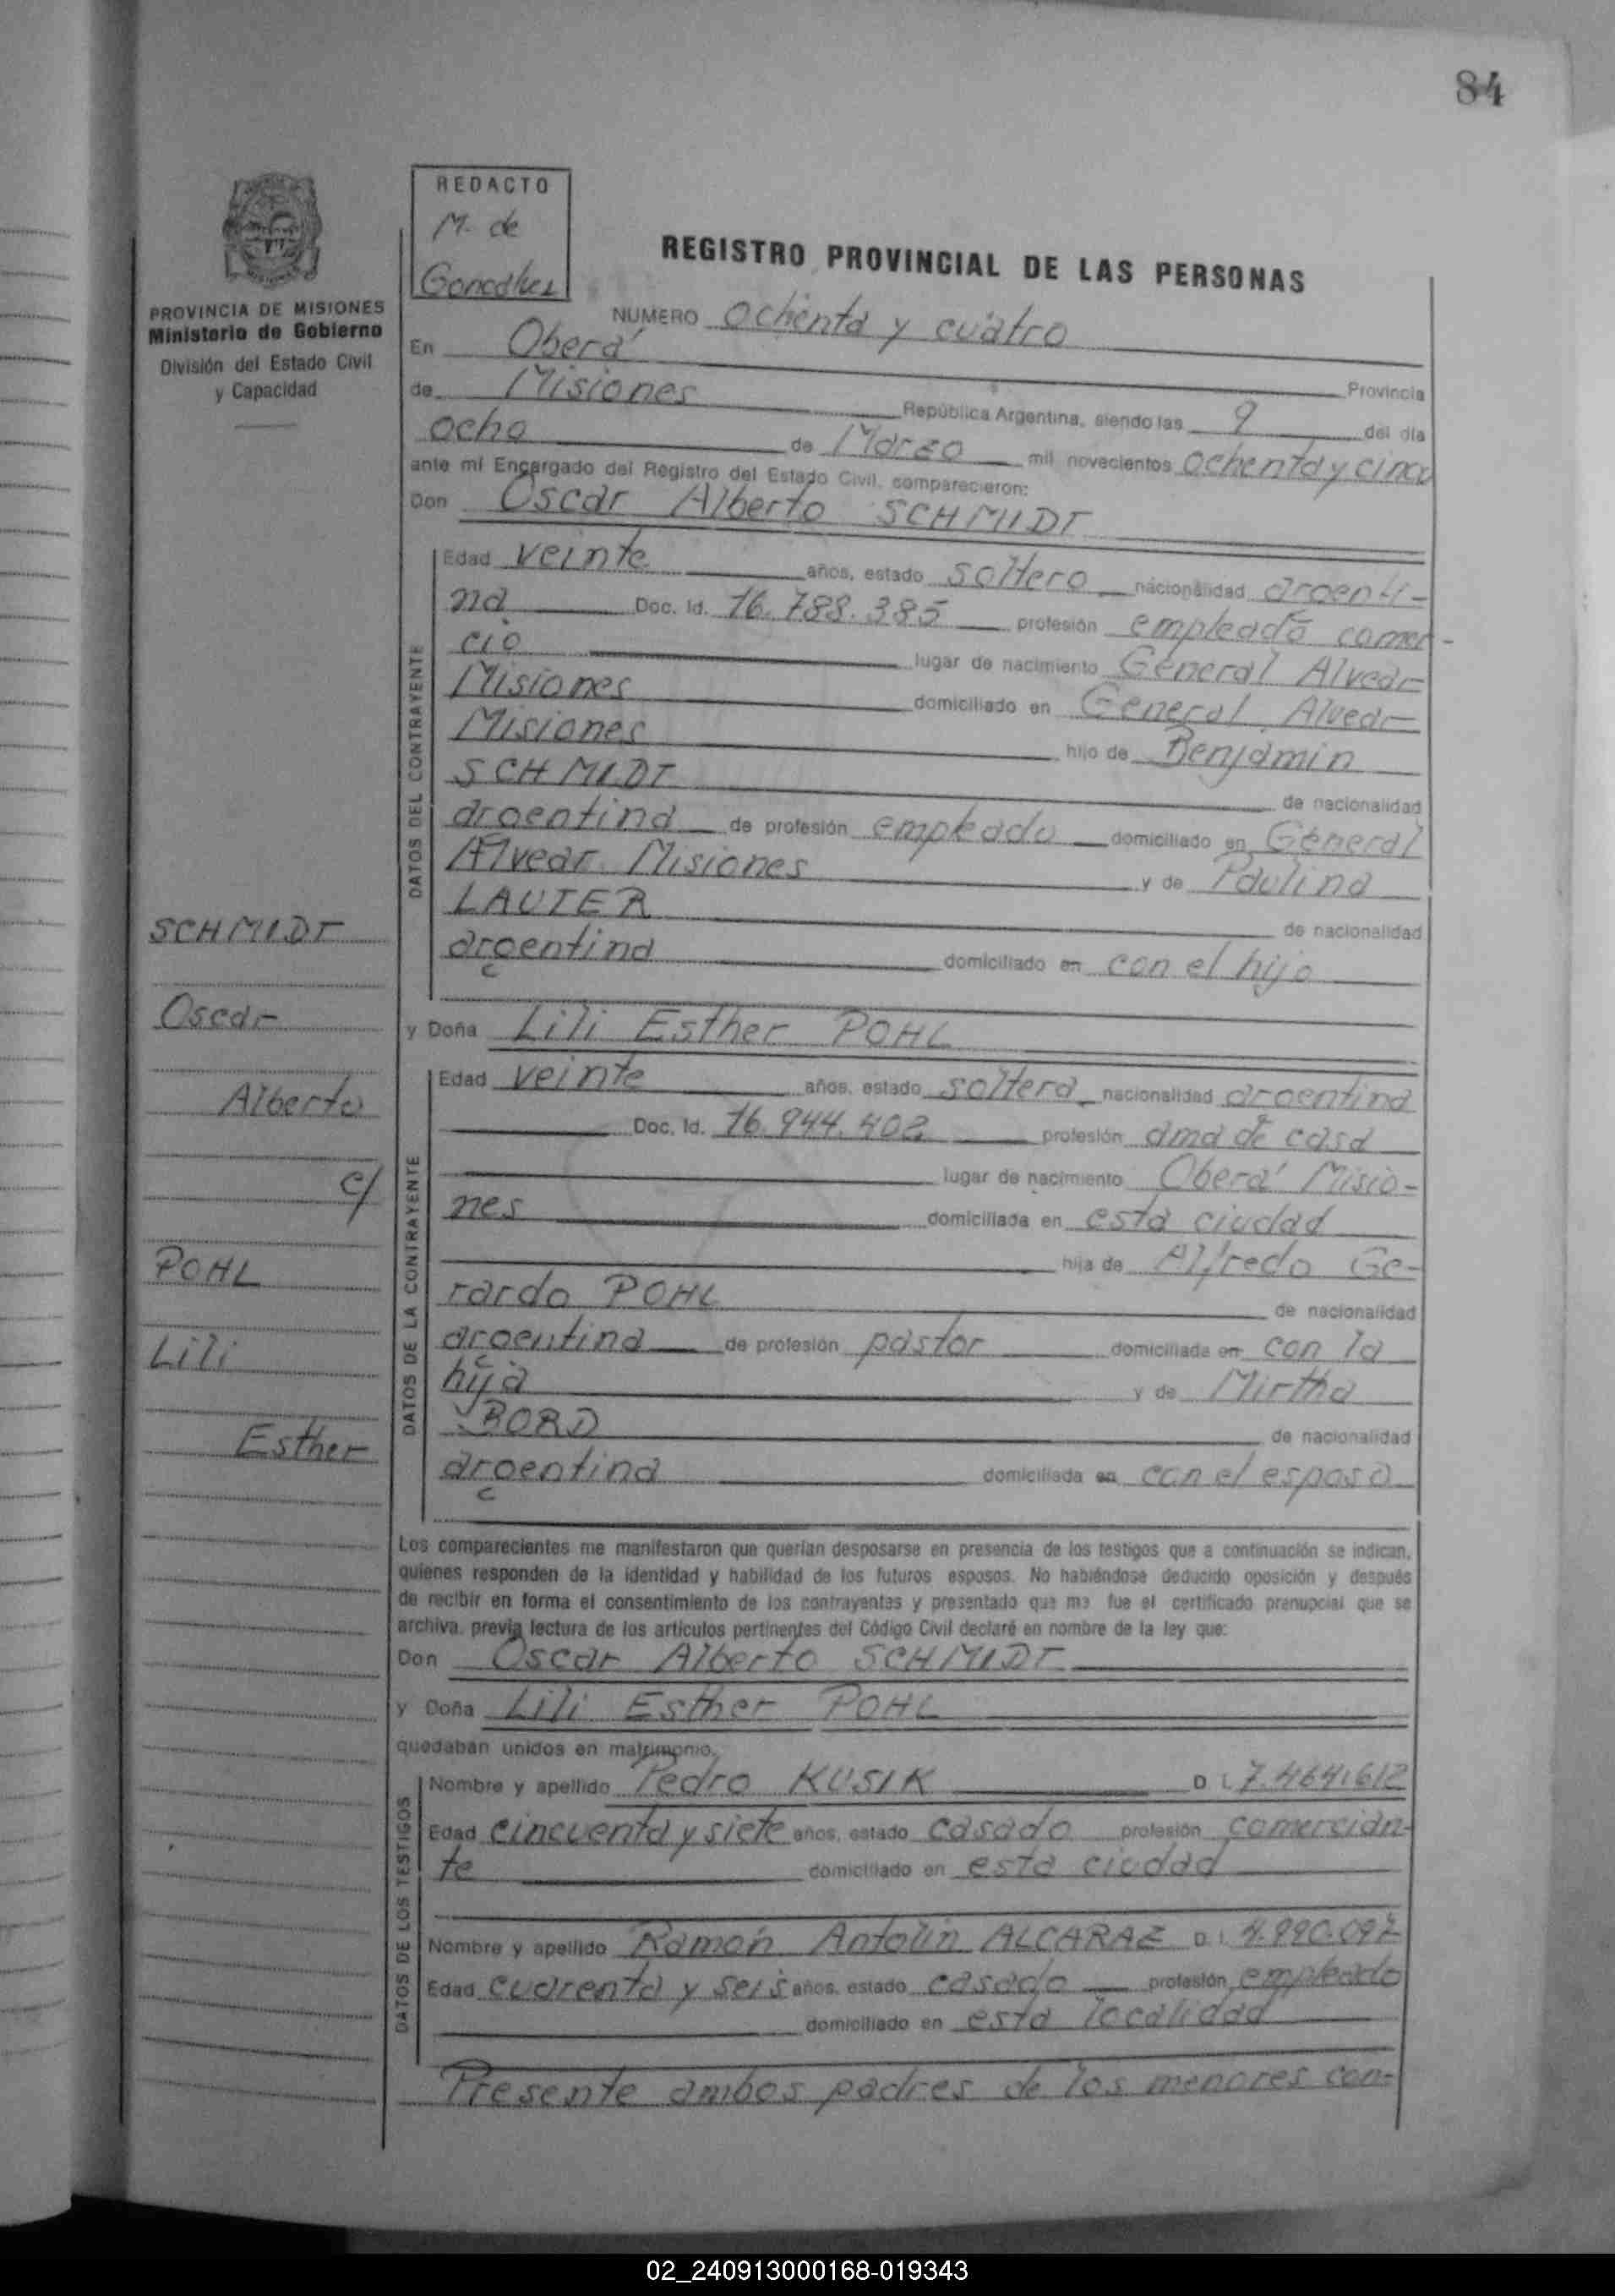 84
REDACTO
M. de
Goncalvez
REGISTRO PROVINCIAL DE LAS PERSONAS
PROVINCIA DE MISIONES
Ministerio de Gobierno
División del Estado Civil
y Capacidad
NUMERO ochenta y cuatro
En Oberá Provincia
de Misiones República Argentina, siendo las 9 del día
ocho de Marzo mil novecientos ochenta y cinco
ante mí Encargado del Registro del Estado Civil, comparecieron:
Don Oscar Alberto SCHMIDT
DATOS DEL CONTRAYENTE
Edad veinte años, estado soltero nacionalidad argenti-
na Doc. Id. 16.788.385 profesión empleado comer-
cio lugar de nacimiento General Alvear
Misiones domiciliado en General Alvear
Misiones hijo de Benjamin
SCHMIDT de nacionalidad
argentina de profesión empleado domiciliado en General
Alvear Misiones y de Paulina
LAUTER de nacionalidad
argentina domiciliado en con el hijo
y Doña Lili Esther POHL
DATOS DE LA CONTRAYENTE
Edad veinte años, estado soltera nacionalidad argentina
Doc. Id. 16.944.402 profesión ama de casa
lugar de nacimiento Oberá Misio-
nes domiciliada en esta ciudad
hija de Alfredo Ge-
rardo POHL de nacionalidad
argentina de profesión pastor domiciliada en con la
hija y de Mirtha
BORD de nacionalidad
argentina domiciliada en con el esposo
SCHMIDT
Oscar
Alberto
c/
POHL
Lili
Esther
Los comparecientes me manifestaron que querían desposarse en presencia de los testigos que a continuación se indican,
quienes responden de la identidad y habilidad de los futuros esposos. No habiéndose deducido oposición y después
de recibir en forma el consentimiento de los contrayentes y presentado que me fue el certificado prenupcial que se
archiva, previa lectura de los artículos pertinentes del Código Civil declaré en nombre de la ley que:
Don Oscar Alberto SCHMIDT
y Doña Lili Esther POHL
quedaban unidos en matrimonio.
DATOS DE LOS TESTIGOS
Nombre y apellido Pedro KUSIK D.I. 7.464.612
Edad cincuenta y siete años, estado casado profesión comercian-
te domiciliado en esta ciudad
Nombre y apellido Ramón Antolin ALCARAZ D.I. 4.990.092
Edad cuarenta y seis años, estado casado profesión empleado
domiciliado en esta localidad
Presente ambos padres de los menores con-
02_240913000168-019343